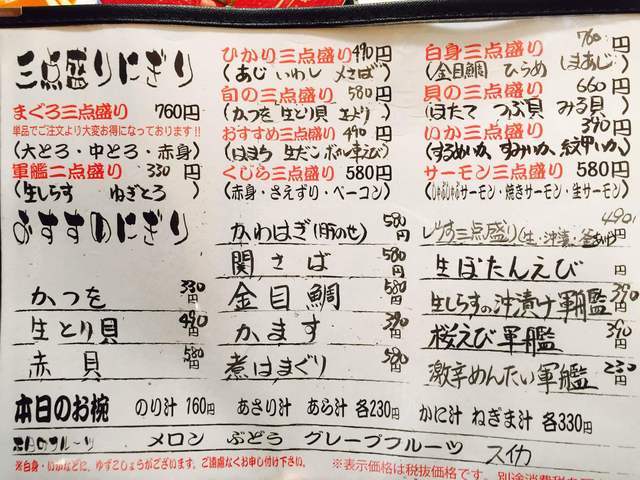 三点盛りにぎり
まぐろ三点盛り 760円
単品でご注文より大変お得になっております!!
(大とろ・中とろ・赤身)
軍艦二点盛り 330円
(生しらす ねぎとろ)
ひかり三点盛り 490円
(あじ いわし 〆さば)
旬の三点盛り 580円
(かつを 生とり貝
おすすめ三点盛り 490円
(はまち 生だこ ボイル車えび)
くじら三点盛り 580円
(赤身・さえずり・ベーコン)
白身三点盛り 760円
(金目鯛 ひらめ しまあじ)
貝の三点盛り 660円
(ほたて つぶ貝 みる貝)
いか三点盛り 390円
(するめいか、すみいか、紋甲いか)
サーモン三点盛り 580円
(しゃぶしゃぶサーモン・焼きサーモン・生サーモン)
おすすめにぎり
かつを 330円
生とり貝 490円
赤貝 580円
かわはぎ(肝のせ) 580円
関さば 580円
金目鯛 580円
かます 390円
煮はまぐり 580円
しらす三点盛り(生・沖漬・釜あげ) 490円
生ぼたんえび 円
生しらすの沖漬け軍艦 390円
桜えび軍艦 390円
激辛めんたい軍艦 230円
本日のお椀 のり汁 160円 あさり汁 あら汁 各230円 かに汁 ねぎま汁 各330円
本日のフルーツ メロン ぶどう グレープフルーツ スイカ
※白身・いかなどに、ゆずこしょうがございます。ご遠慮なくお申し付け下さい。 ※表示価格は税抜価格です。別途消費税